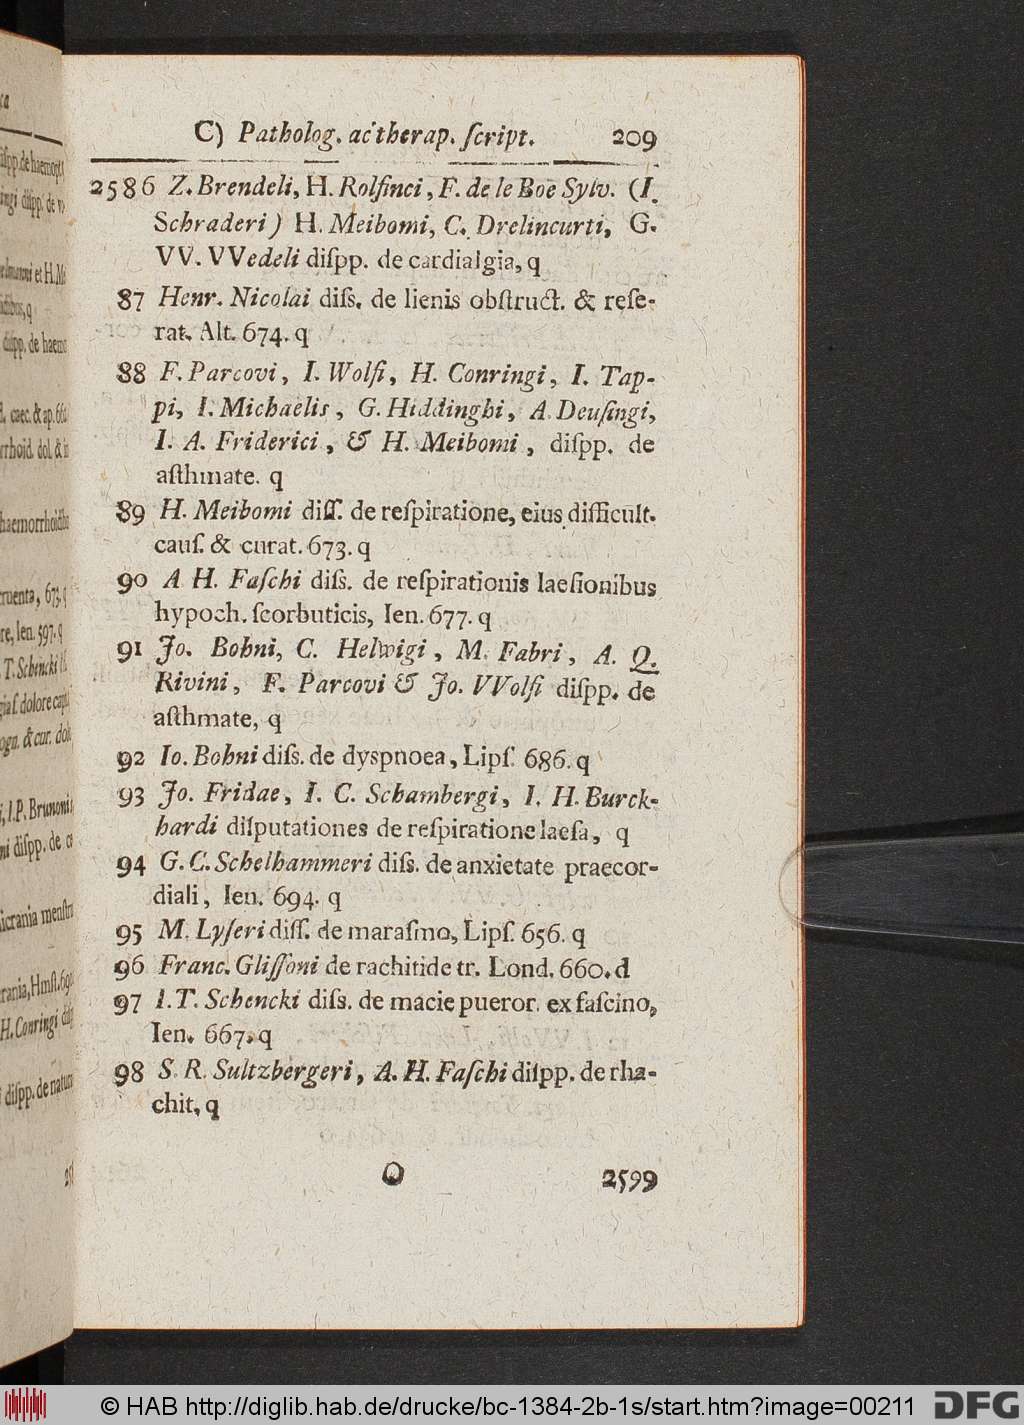 C) Patholog. ac therap. ſcript. 209
2586 Z. Brendeli, H. Rolfinci, F. de le Boe Sylv. (I.
Schraderi) H. Meibomi, C. Drelincurti, G.
VV. VVedeli diſpp. de cardialgia, q
87 Henr. Nicolai diſs. de lienis obſtruct. & reſe-
rat. Alt. 674. q
88 F. Parcovi, I. Wolfi, H. Conringi, I. Tap-
pi, I. Michaelis, G. Hiddinghi, A. Deuſingi,
I. A. Friderici, & H. Meibomi, diſpp. de
aſthmate. q
89 H. Meibomi diſſ. de reſpiratione, eius difficult.
cauſ. & curat. 673. q
90 A H. Faſchi diſs. de reſpirationis laeſionibus
hypoch. ſcorbuticis, Ien. 677. q
91 Jo. Bohni, C. Helwigi, M. Fabri, A. Q.
Rivini, F. Parcovi & Jo. VVolfi diſpp. de
aſthmate, q
92 Io. Bohni diſs. de dyspnoea, Lipſ. 686. q
93 Jo. Fridae, I. C. Schambergi, I. H. Burck-
hardi diſputationes de reſpiratione laeſa, q
94 G. C. Schelhammeri diſs. de anxietate praecor-
diali, Ien. 694. q
95 M. Lyſeri diſſ. de maraſmo, Lipſ. 656. q
96 Franc. Gliſſoni de rachitide tr. Lond. 660. d
97 I. T. Schencki diſs. de macie pueror. ex faſcino,
Ien. 667. q
98 S. R. Sultzbergeri, A. H. Faſchi diſpp. de rha-
chit, q
O 2599
© HAB http://diglib.hab.de/drucke/bc-1384-2b-1s/start.htm?image=00211 DFG